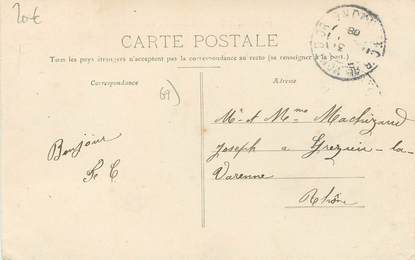 20€
CARTE POSTALE
Tous les pays étrangers n'acceptent pas la correspondance au recto (se renseigner à la poste).
Correspondance
Adresse
69
Mr et Mme Machizaud
Joseph a Grezieu-la-
Varenne
Rhône
Bonjour